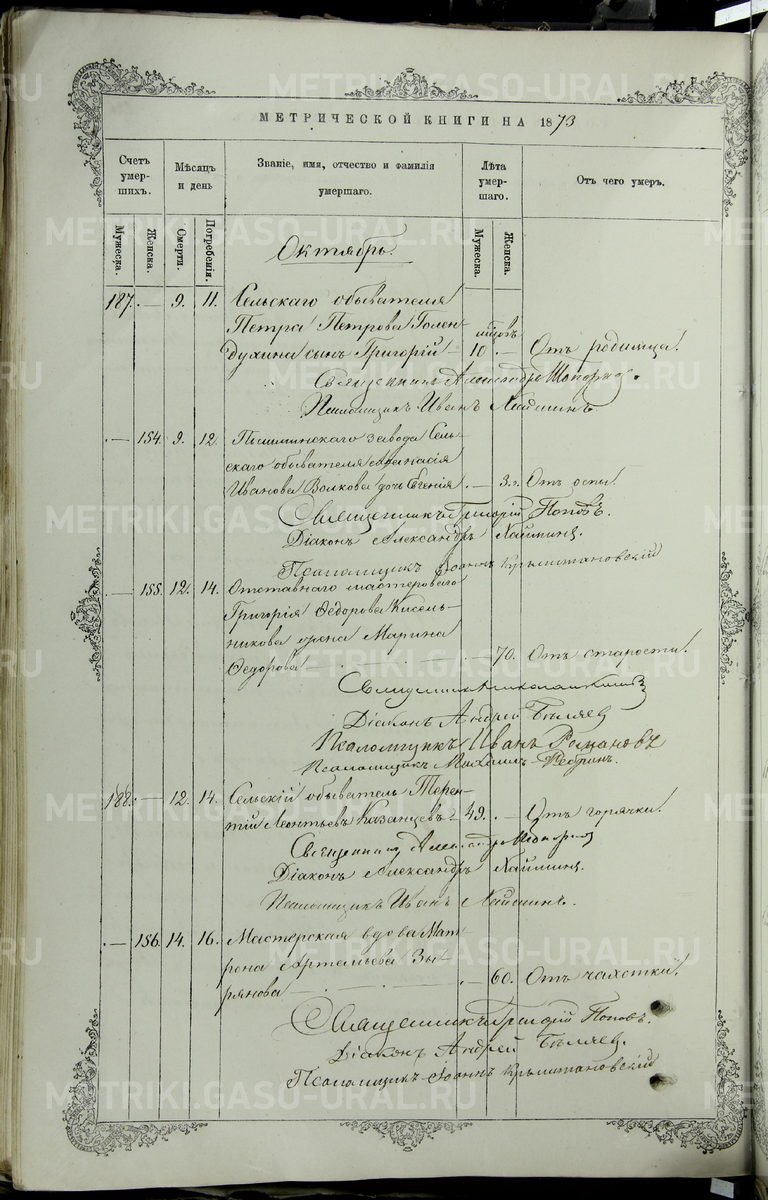 МЕТРИЧЕСКОЙ КНИГИ НА 1873
Счетъ умер-шихъ.
Мѣсяцъ и день
Званіе, имя, отчество и фамилія умершаго.
Лѣта умер-шаго.
Отъ чего умеръ.
Мужеска.
Женска.
Смерти.
Погребенія.
Мужеска.
Женска.
Октябрь.
187. — 9. 11. Сельскаго обывателя
Петра Петрова Голен-
духина сынъ Григорій — 10 мѣсяцовъ — Отъ родимца.
Священникъ Александръ
Псаломщикъ Иванъ Хаймин.
— 154. 9. 12. Пышминскаго завода Сель-
скаго обывателя Афанасія
Иванова Волкова дочь Евгенія. — 3. Отъ оспы.
Священникъ Григорій Поповъ.
Діаконъ Александръ Хайминъ.
Псаломщикъ Іоаннъ Крыжановскій
— 155. 12. 14. Отставнаго мастероваго
Григорія Ѳедорова Кисель-
никова жена Марина
Ѳедорова — 70. Отъ старости.
Священникъ Николай
Діаконъ Андрей Бѣляев
Псаломщикъ Иванъ Романовъ
Псаломщикъ Михаилъ
188. — 12. 14. Сельскій обыватель Терен-
тій Леонтьевъ Казанцевъ — 49. — Отъ горячки.
Священникъ Александръ
Діаконъ Александръ Хайминъ.
Псаломщикъ Иванъ Хайминъ.
— 156. 14. 16. Мастерская вдова Мат-
рона Артемьева Зы-
рянова — 60. Отъ чахотки.
Священникъ Григорій Поповъ.
Діаконъ Андрей Бѣляев.
Псаломщикъ Іоаннъ Крыжановскій
METRIKI.GASO-URAL.RU